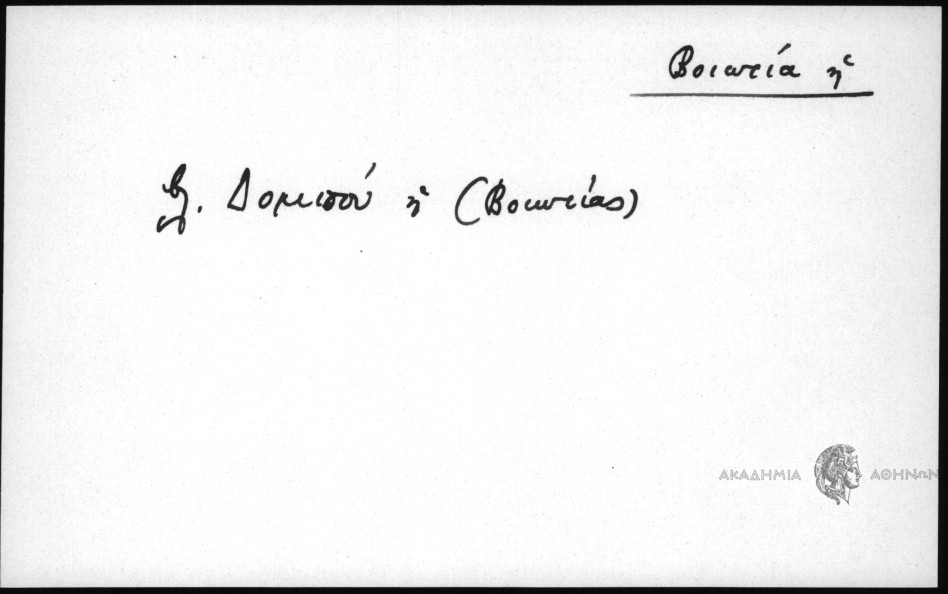 Βοιωτία ἡ
βλ. Δομποὺ ἡ (Βοιωτίας)
ΑΚΑΔΗΜΙΑ ΑΘΗΝΩΝ